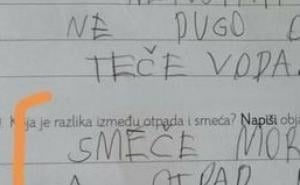 NE DUGO
TEČE VODA.
je razlika između otpada i smeća? Napiši
SMEČE
OTPAD